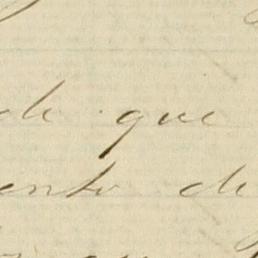 de que
ento de